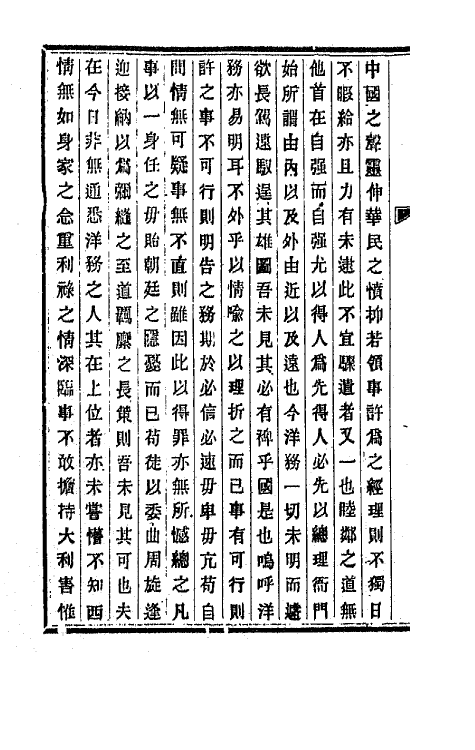 中國之聲靈伸華民之憤抑若領事許爲之經理則不獨日
不暇給亦且力有未逮此不宜驟遣者又一也睦鄰之道無
他首在自强而自强尤以得人爲先得人必先以總理衙門
始所謂由內以及外由近以及遠也今洋務一切未明而遽
欲長駕遠馭逞其雄圖吾未見其必有裨乎國是也嗚呼洋
務亦易明耳不外乎以情喩之以理折之而已事有可行則
許之事不可行則明告之務期於必信必速毋卑毋亢苟自
問情無可疑事無不直則雖因此以得罪亦無所憾總之凡
事以一身任之毋貽朝廷之隱憂而已苟徒以委曲周旋逢
迎接納以爲彌縫之至道羈縻之長策則吾未見其可也夫
在今日非無通悉洋務之人其在上位者亦未嘗懵不知西
情無如身家之念重利祿之情深臨事不敢擔持大利害惟